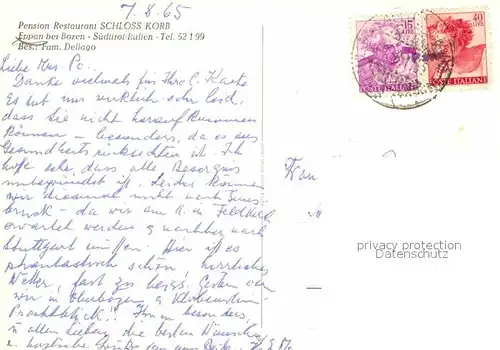 7.8.65
Pension Restaurant SCHLOSS KORB
Eppan bei Bozen - Südtirol-Italien - Tel. 52 1 99
Bes.: Fam. Dellago
15 LIRE
40 LIRE
POSTE ITALIANE
POSTE ITALIANE
Liebe Mrs. Po.
Danke vielmals für Ihre l. Karte
Es tut mir wirklich sehr leid,
dass Sie nicht heraufkommen
können - besonders, da es aus
Gesundheitsrücksichten ist. Ich
hoffe sehr, dass alle Besorgnis
unbegründet ist. Leider können
wir diesmal nicht nach Inns
bruck - da wir am 11. in Feldkirch
erwartet werden & nachher nach
Stuttgart müssen. Hier ist es
phantastisch schön, herrliches
Wetter, fast zu heiss. Gestern
wir in &
Prachtblick!! Ihnen besonders,
in aller Liebe, die besten Wünsche
u. herzliche Grüße von
Frau
privacy protection
Datenschutz